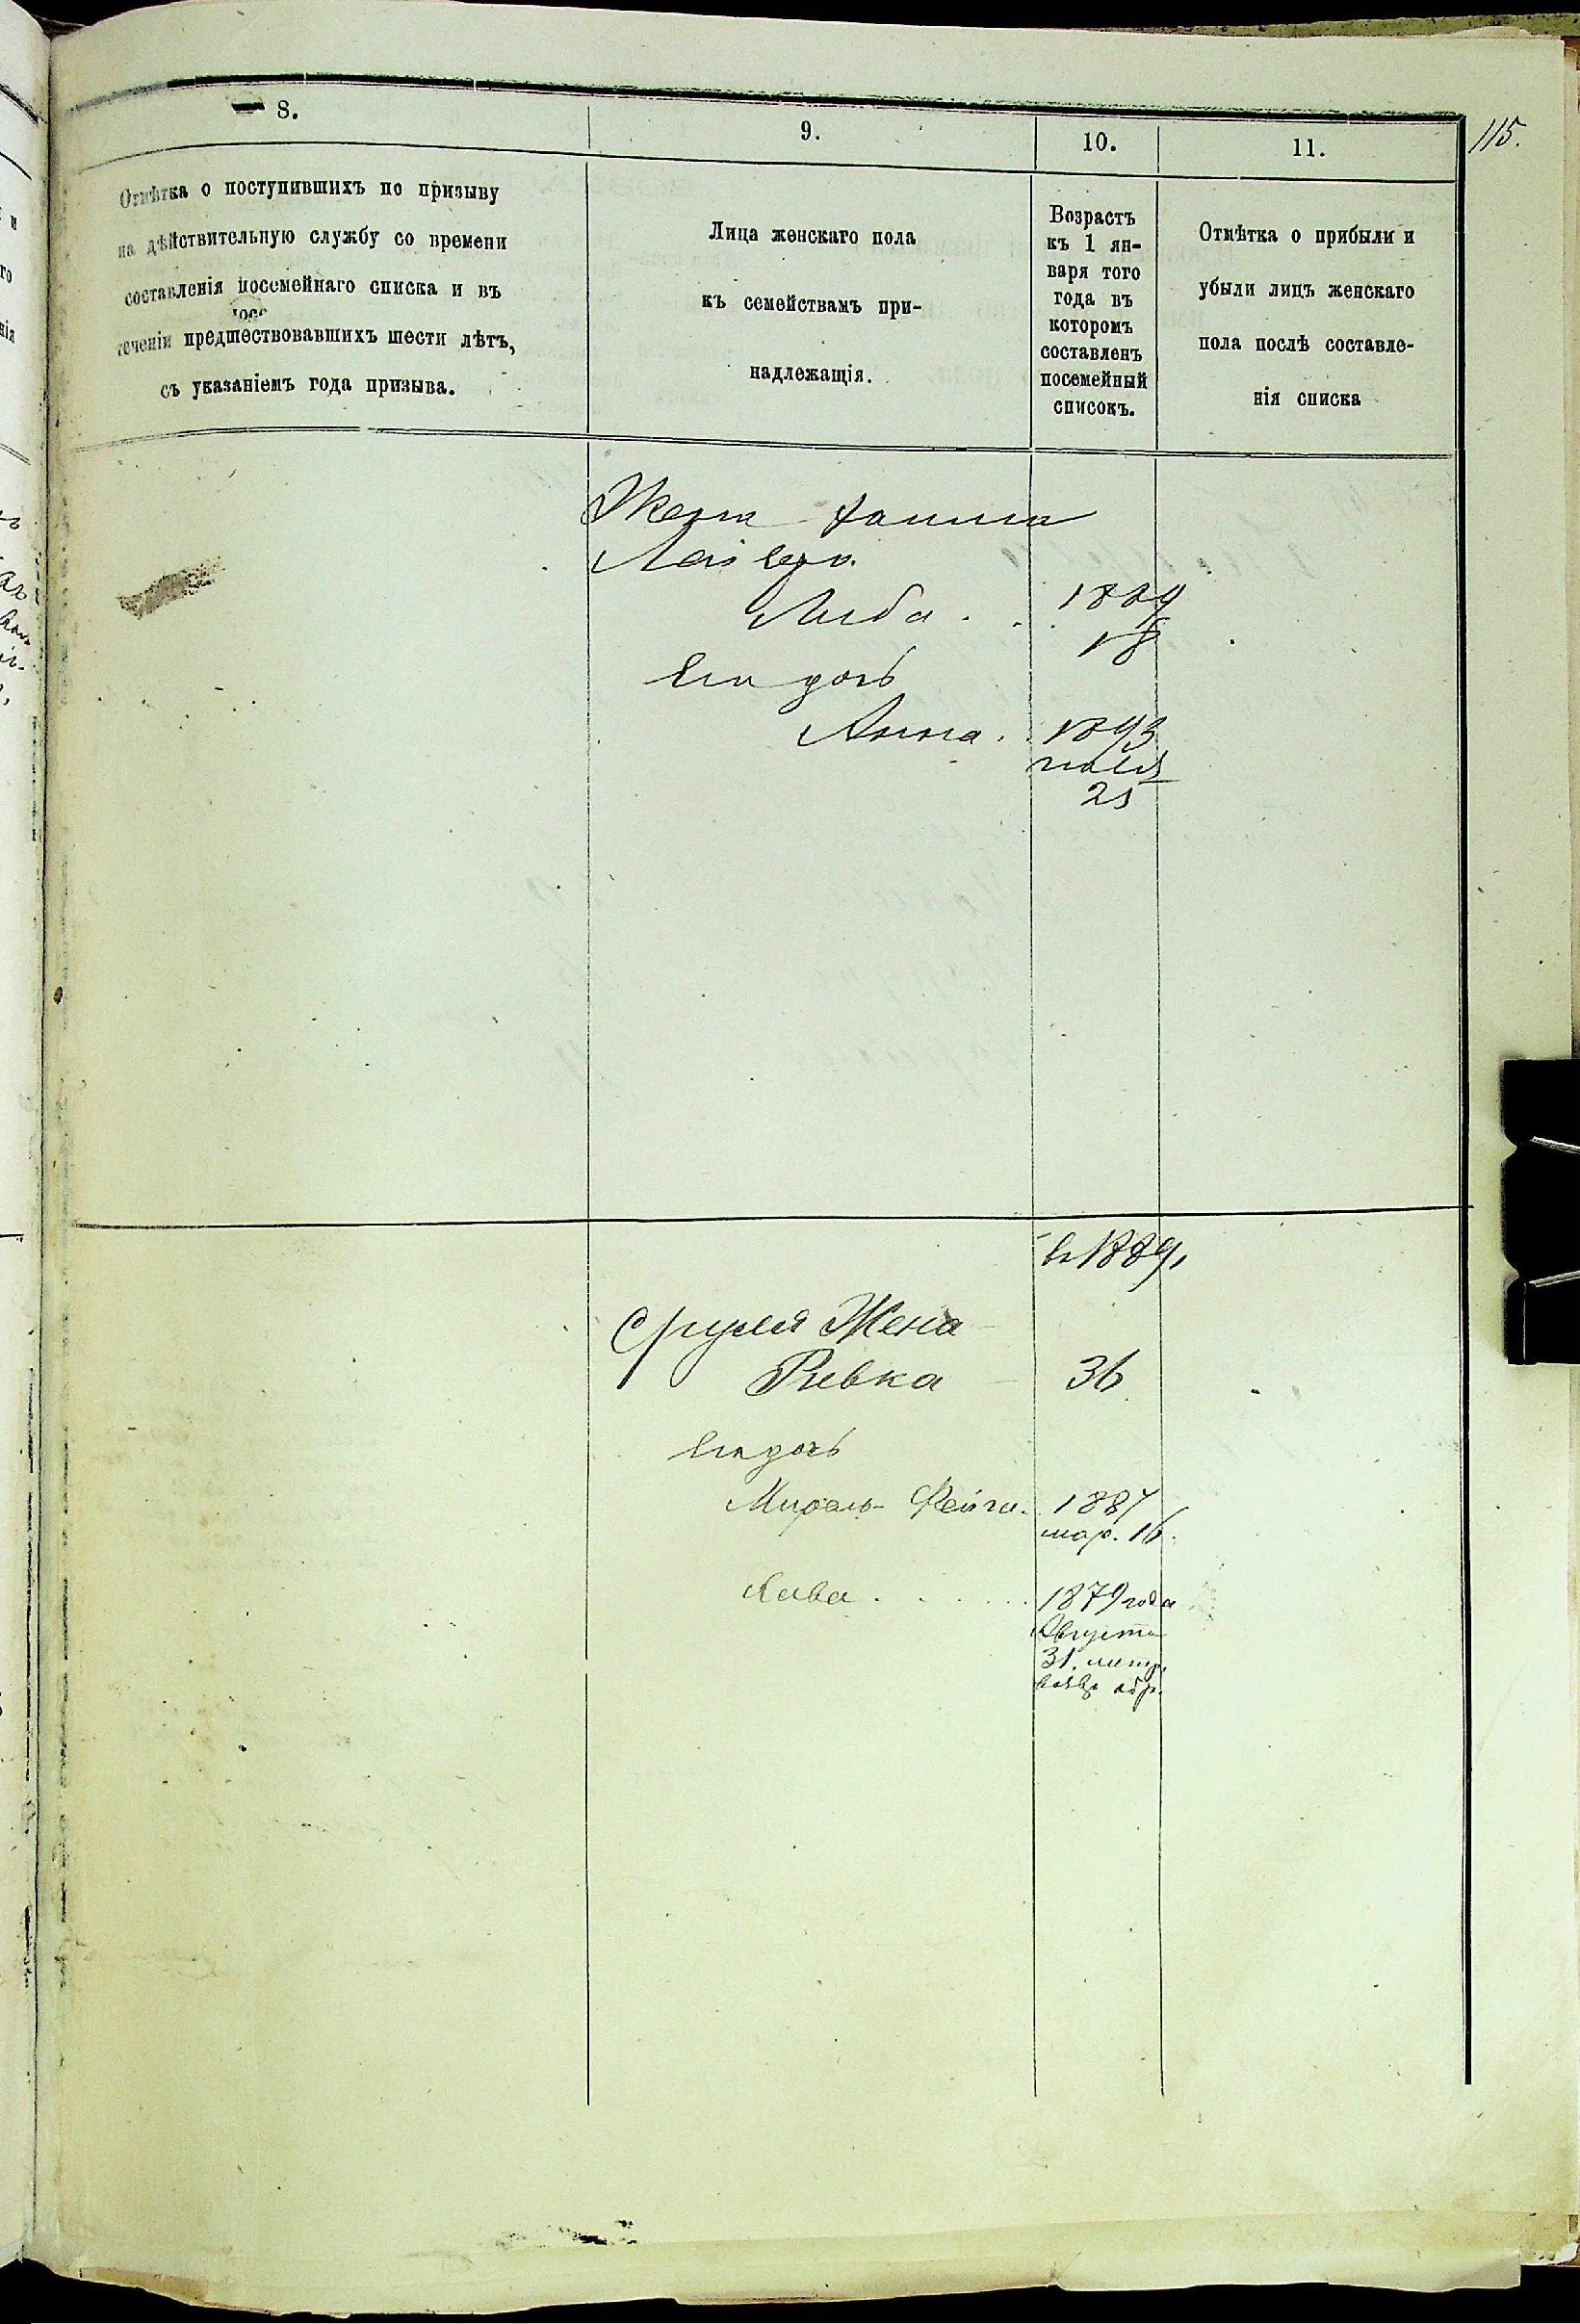 115.
8.
Отмѣтка о поступившихъ по призыву
на дѣйствительную службу со времени
составленія посемейнаго списка и въ
теченіи предшествовавшихъ шести лѣтъ,
съ указаніемъ года призыва.
9.
Лица женскаго пола
къ семействамъ при-
надлежащія.
10.
Возрастъ
къ 1 ян-
варя того
года въ
которомъ
составленъ
посемейный
списокъ.
11.
Отмѣтка о прибыли и
убыли лицъ женскаго
пола послѣ составле-
нія списка
Жена
Лейзера
Либа . . 1889
18
Его дочь
Анна . . 1893
25
въ 1889,
Сруля Жена
Ривка 36
Его дочь
Мирель-Фейга. 1887
мар. 16.
Хава . . . . . 1879 года
Августа
31.